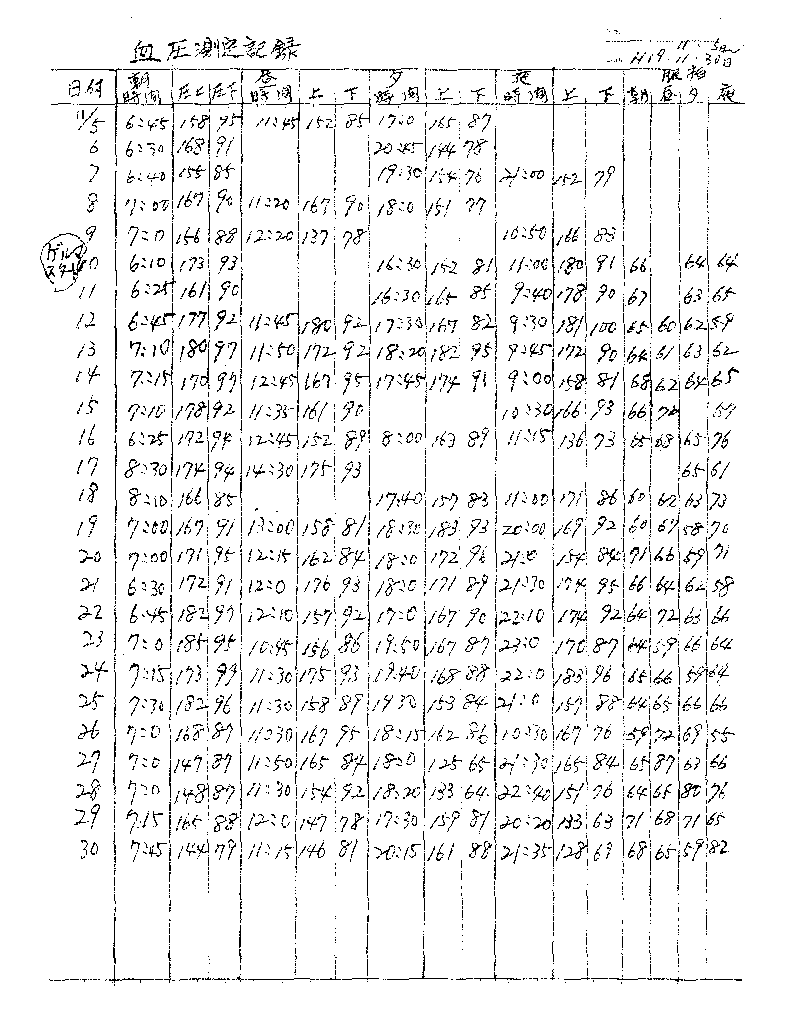 血圧測定記録
11.5〜
H19.11.30日
朝 昼 夕 夜 服拍
日付 時間 圧上 圧下 時間 上 下 時間 上 下 時間 上 下 朝 昼 夕 夜
11/5 6:45 158 95 11:45 152 85 17:0 165 87
6 6:30 168 91 20:45 144 78
7 6:40 155 85 19:30 154 76 21:00 152 79
8 7:00 167 90 11:20 167 90 18:0 151 77
9 7:0 156 88 12:20 137 78 10:50 166 83
ゲルマ
スタート
10 6:10 173 93 16:30 152 81 11:00 180 91 66 64 64
11 6:25 161 90 16:30 165 85 9:40 178 90 67 63 65
12 6:45 177 92 11:45 180 92 17:30 167 82 9:30 181 100 65 60 62 59
13 7:10 180 97 11:50 172 92 18:20 182 95 9:45 172 90 64 61 63 62
14 7:15 170 97 12:45 167 95 17:45 174 91 9:00 158 81 68 62 64 65
15 7:10 178 92 11:35 161 90 10:30 166 93 66 72
16 6:25 172 94 12:45 152 89 8:00 163 89 11:15 136 73 65 68 65 76
17 8:30 174 94 14:30 175 93 65 61
18 8:10 166 85 17:40 157 83 11:00 171 86 60 62 63 73
19 7:00 167 91 13:00 158 81 18:30 183 93 20:00 169 92 60 67 58 70
20 7:00 171 95 12:15 162 84 18:0 172 96 21:0 154 84 71 66 59 71
21 6:30 172 91 12:0 176 93 18:0 171 89 21:30 174 95 66 64 62 58
22 6:45 182 97 12:10 157 92 17:0 167 90 22:10 174 92 64 72 63 66
23 7:0 185 95 10:45 156 86 19:50 167 87 23:0 170 87 64 59 66 64
24 7:15 173 99 11:30 175 93 19:40 168 88 22:0 183 96 65 66 59 64
25 7:30 182 96 11:30 158 89 19:30 153 84 21:0 157 88 64 65 66 66
26 7:0 168 87 11:30 167 95 18:15 162 86 10:30 167 76 59 72 69 55
27 7:0 147 87 11:50 165 84 18:0 125 65 21:30 165 84 65 87 63 66
28 7:0 148 87 11:30 154 92 18:20 133 64 22:40 151 76 64 65 80 76
29 7:15 165 88 12:0 147 78 17:30 159 81 20:20 133 63 71 68 71 65
30 7:45 144 79 11:15 146 81 20:15 161 88 21:35 128 69 68 65 59 82